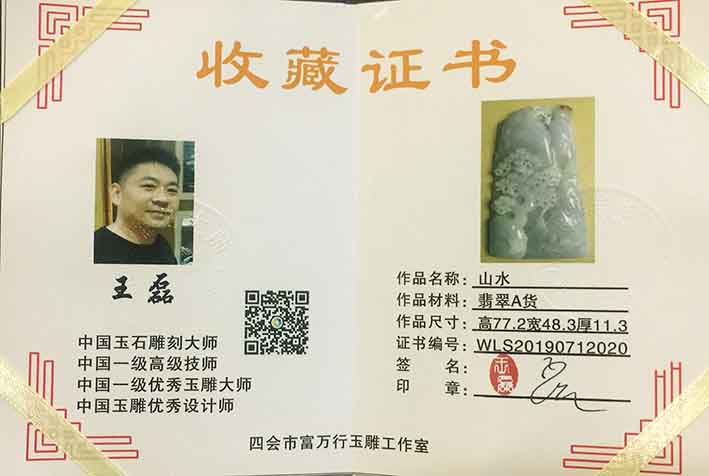 收藏证书
王磊
中国玉石雕刻大师
中国一级高级技师
中国一级优秀玉雕大师
中国玉雕优秀设计师
作品名称：山水
作品材料：翡翠A货
作品尺寸：高77.2宽48.3厚11.3
证书编号：WLS20190712020
签名：
印章：
四会市富万行玉雕工作室